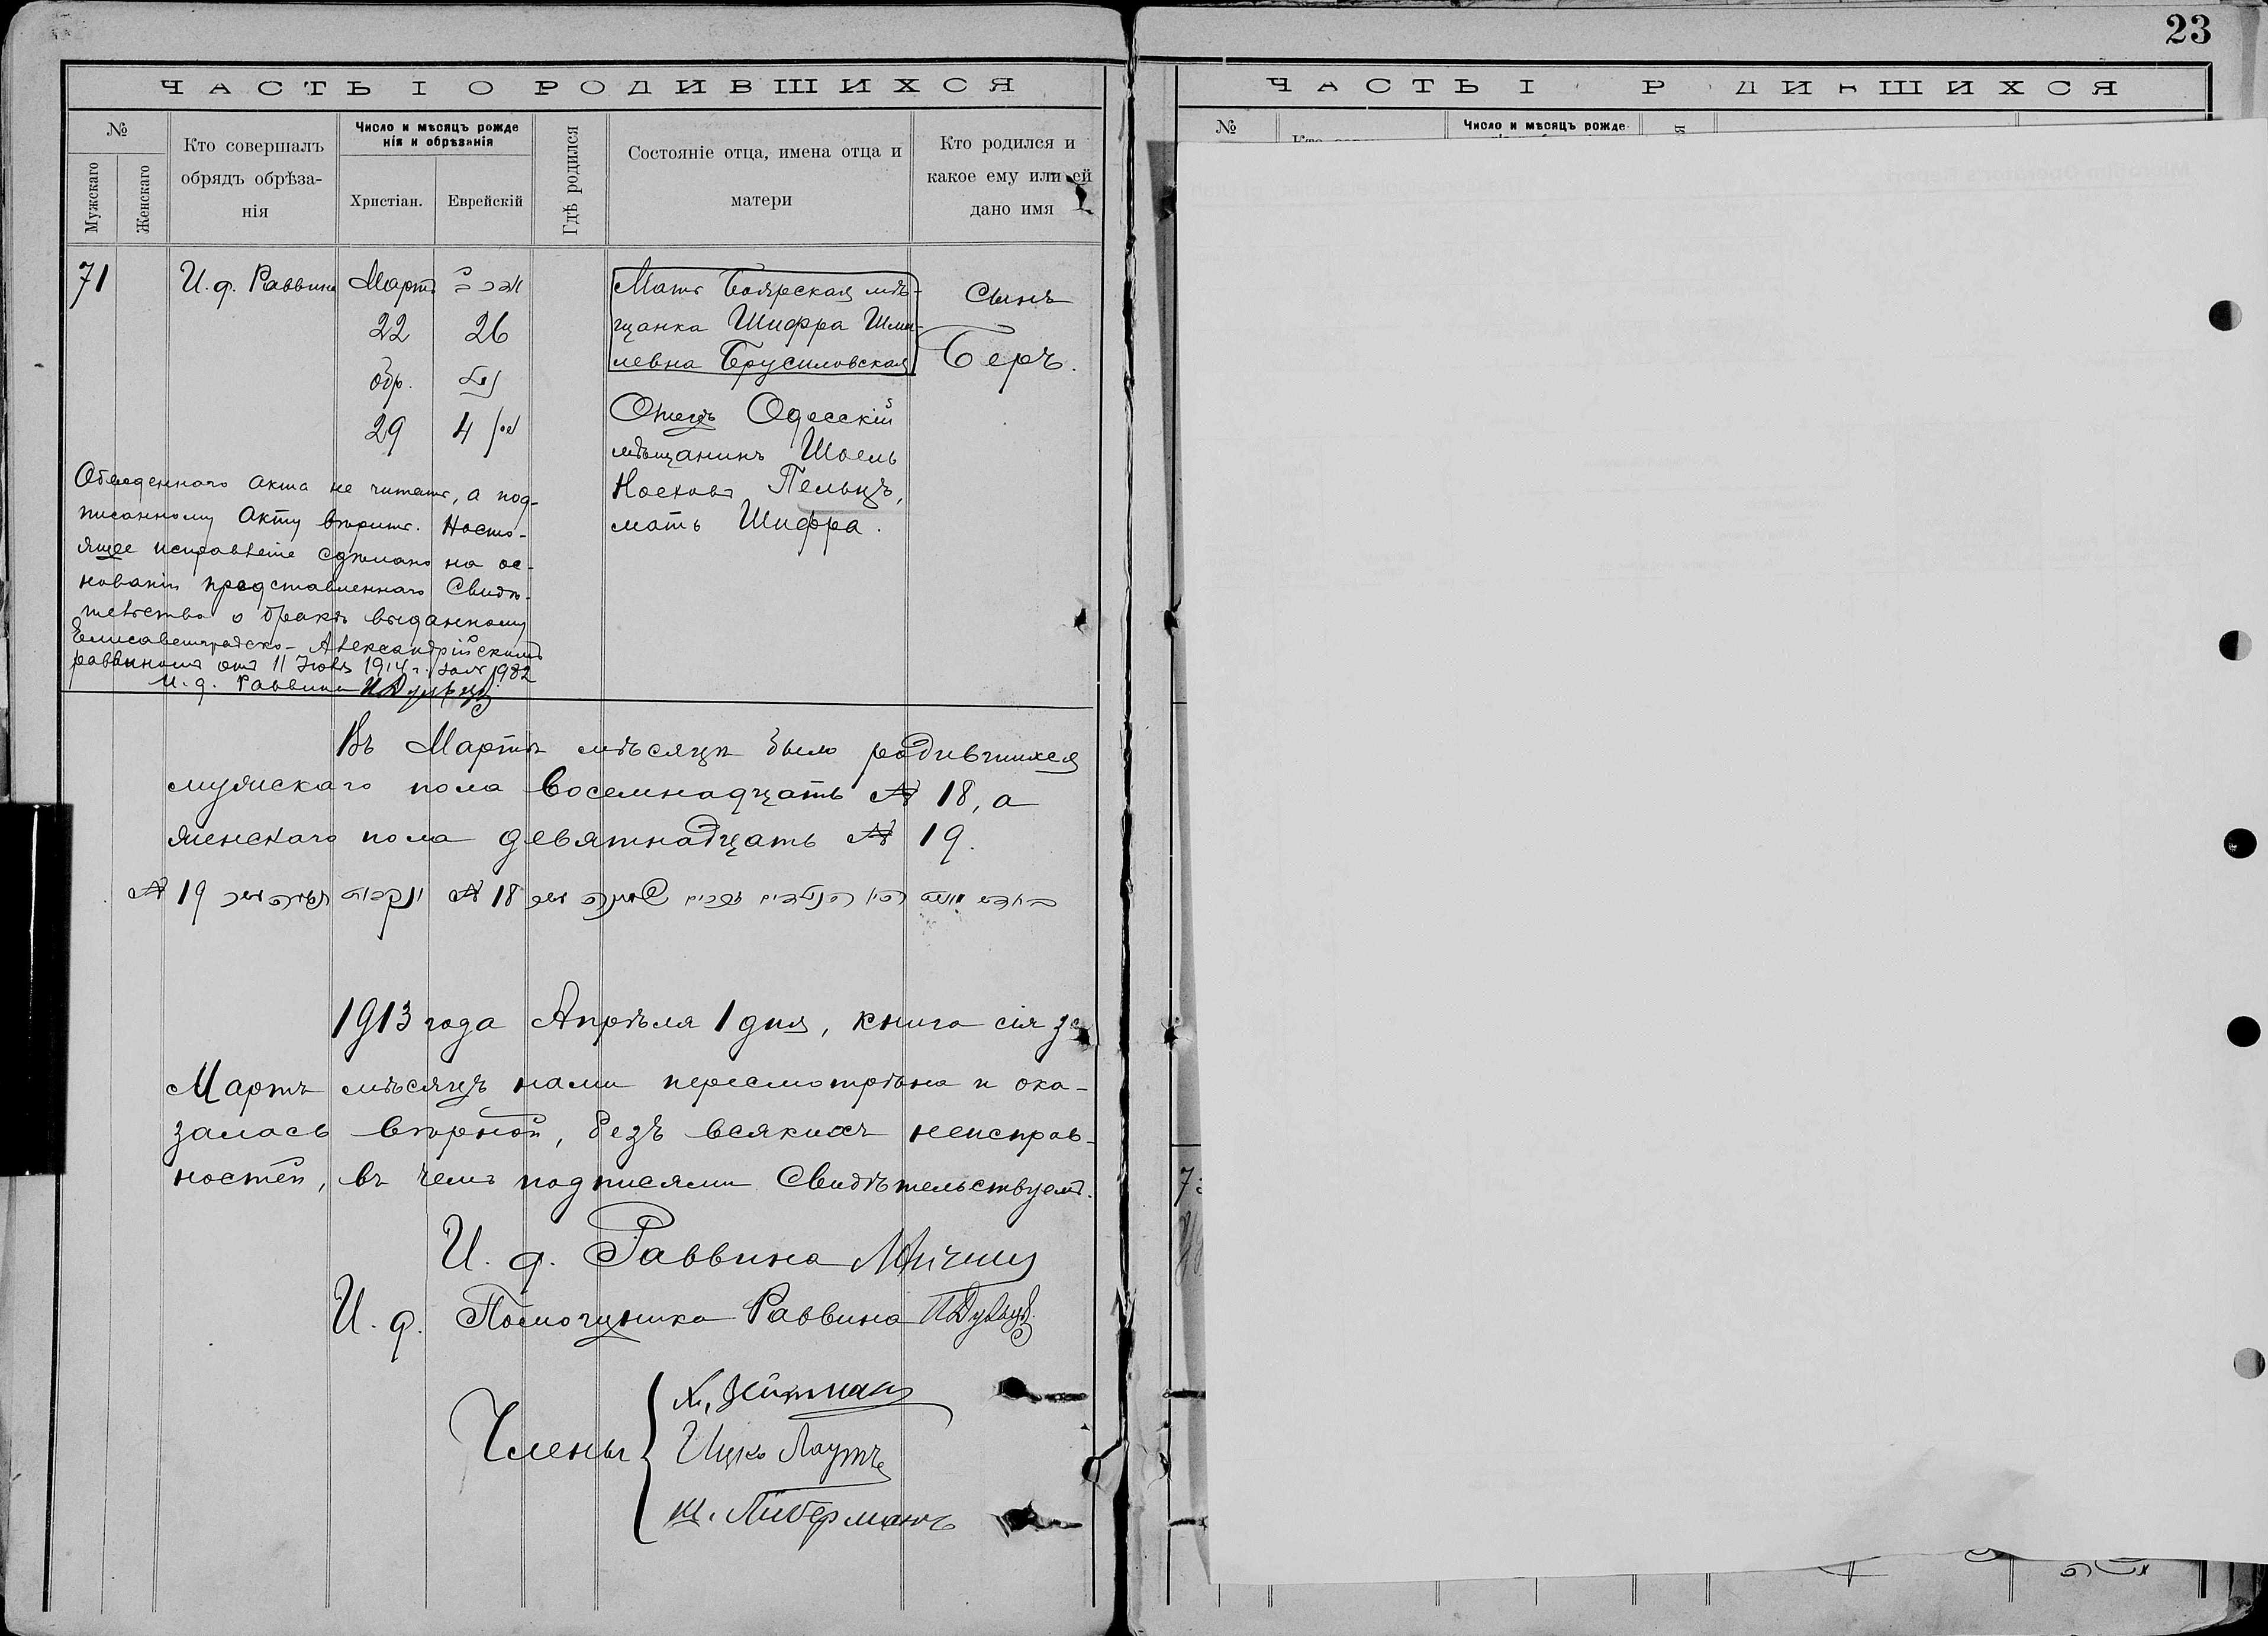 23
ЧАСТЬ I О РОДИВШИХСЯ
№
Мужскаго
Женскаго
Кто совершалъ
обрядъ обрѣза-
нія
Число и мѣсяцъ рожде
нія и обрѣзанія
Христіан.
Еврейскій
Гдѣ родился
Состояніе отца, имена отца и
матери
Кто родился и
какое ему или ей
дано имя
71
И. д. Раввина
Мартъ
22
26
обр.
29
4
Мать Боярская мѣ-
щанка Шифра Шми-
левна Брусиловская
Отецъ Одесскій
мѣщанинъ Шоель
Ноеховъ Пельцъ,
мать Шифра.
Сынъ
Беръ.
Обведеннаго акта не читать, а под-
писанному акту вѣрить. Насто-
ящее исправленіе сдѣлано на ос-
нованіи представленнаго Свидѣ-
тельства о бракѣ выданному
Елисаветградско-Александрійскимъ
раввиномъ отъ 11 1914 г. за № 1982
И. д. Раввина
Въ Мартѣ мѣсяцѣ было родившихся
мужскаго пола восемнадцать № 18, а
женскаго пола девятнадцать № 19.
№ 18 № 19
1913 года Апрѣля 1 дня, книга сія за
Мартъ мѣсяцъ нами пересмотрѣна и ока-
залась вѣрной, безъ всякихъ неисправ-
ностей, въ чемъ подписями Свидѣтельствуемъ.
И. д. Раввина
И. д. Помощника Раввина
Члены
Х. Зейтман
Ицко Лаутъ
Ш. Либерманъ
ЧАСТЬ I Р ДИ ШИХСЯ
№
Число и мѣсяцъ рожде